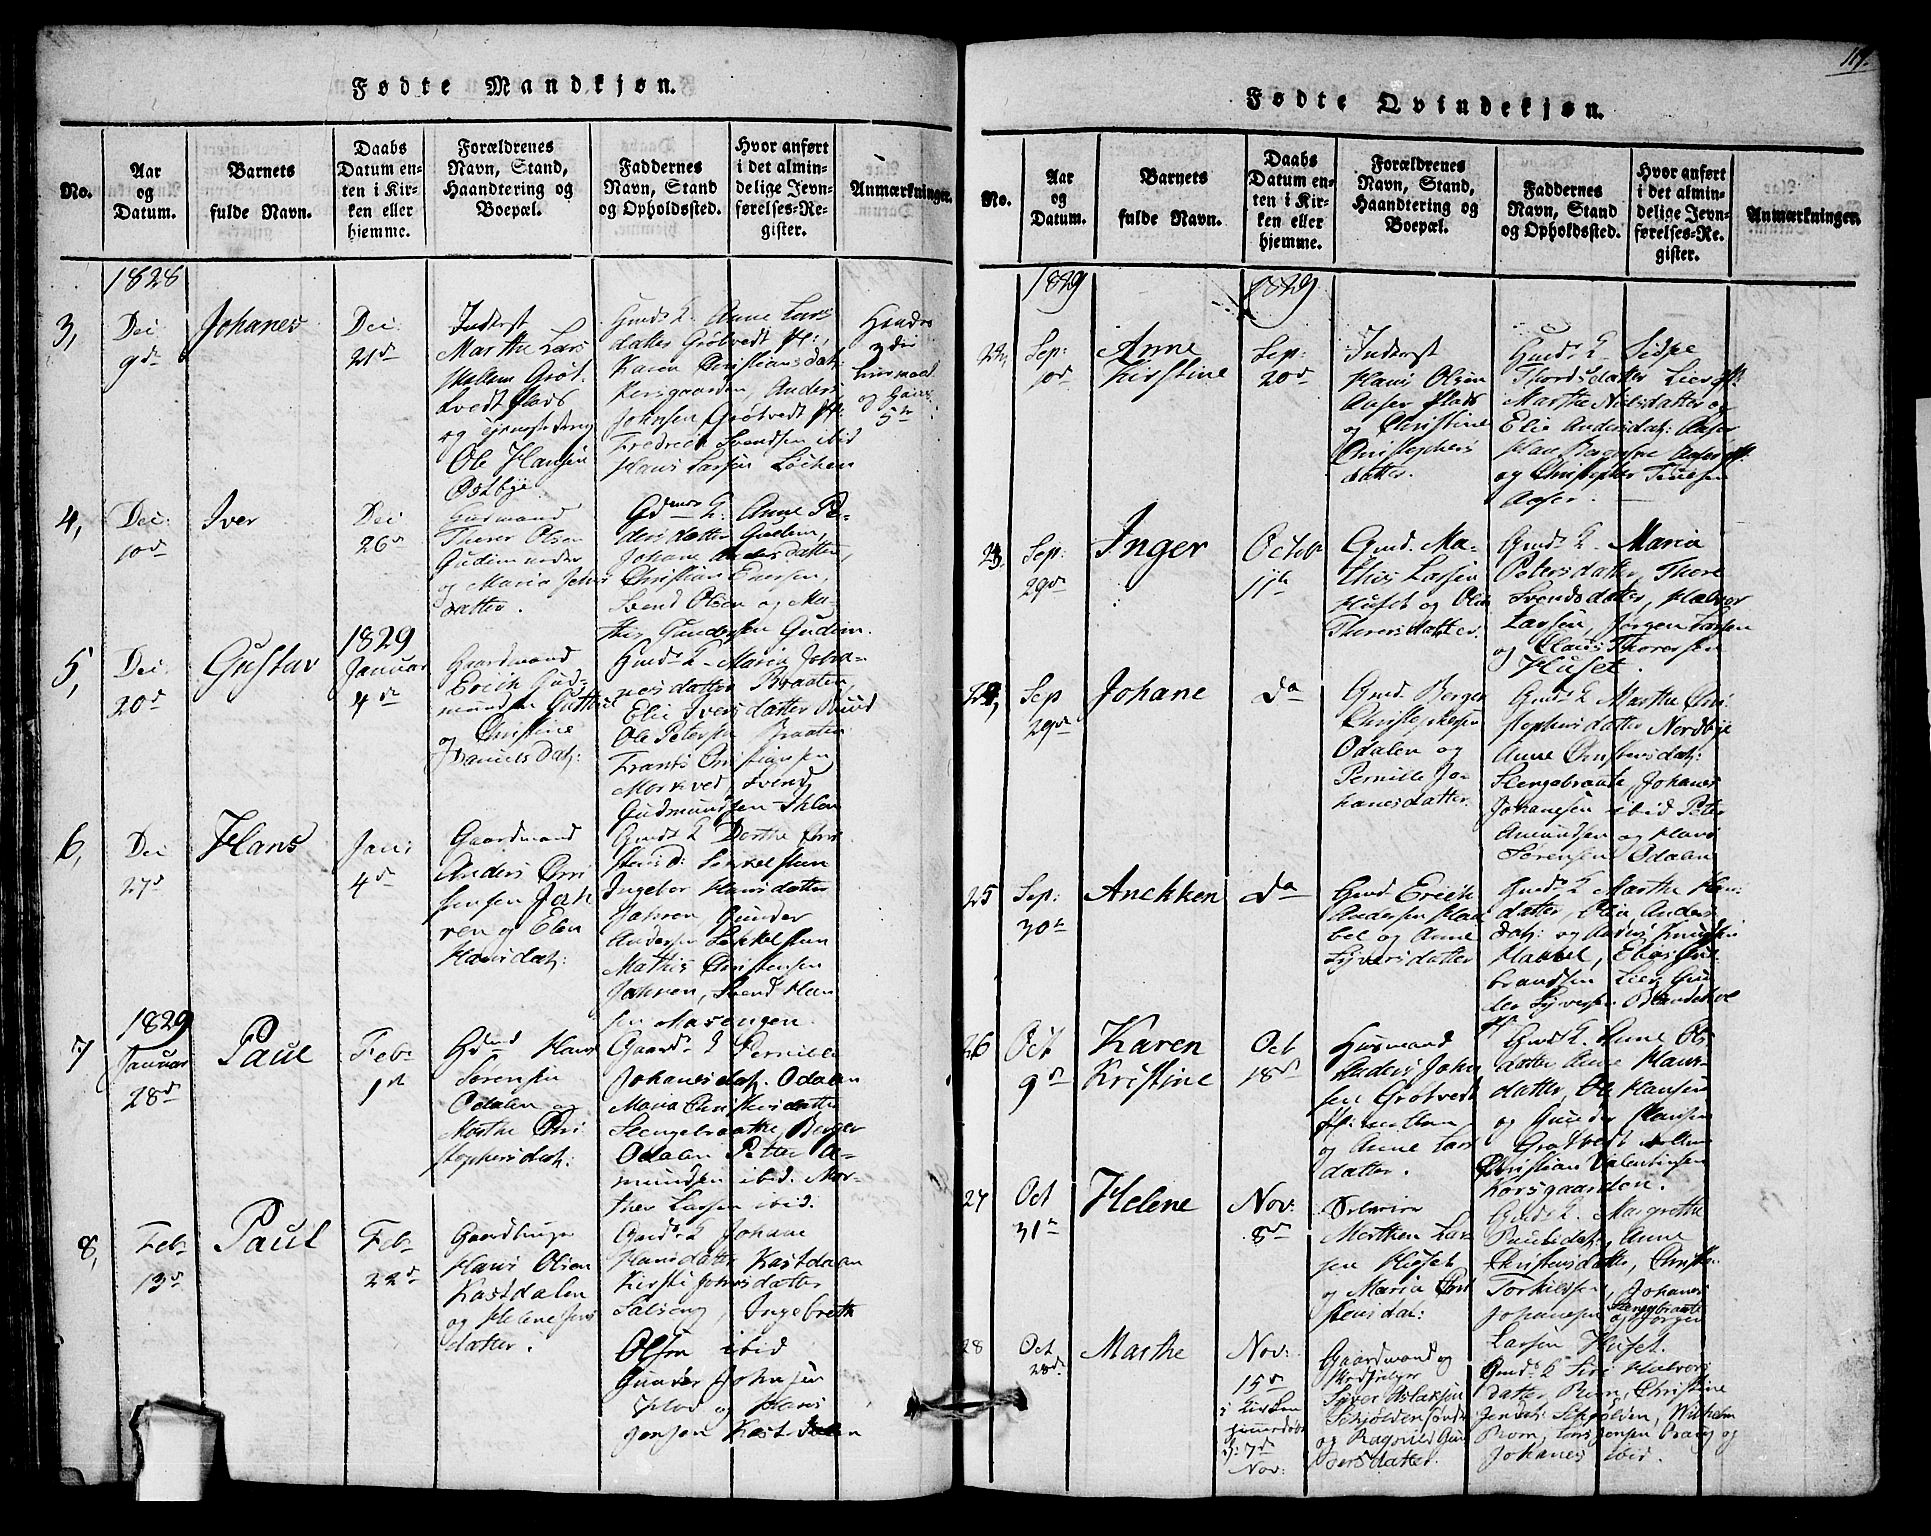 Fødte Mandkjøn.
No.
Aar
og
Datum.
Barnets
fulde Navn.
Daabs
Datum en-
ten i Kir-
ken eller
hjemme.
Forældrenes
Navn, Stand,
Haandtering og
Boepæl.
Faddernes
Navn, Stand
og Opholdssted.
Hvor anført
i det almin-
delige Jevn-
førelses-Re-
gister.
Anmærkninger.
1828
3,
Dec:
9de
Johanes
Dec:
21de
Inderst
Marthe Lars
Grøt
vedt Plads
og
Ole Hansen
Østbye.
Gmds K Anne Lars
datter Grøtvedt Pl:,
Karen Christiansdat:
Korsgaarden, Anders
Johnsen Grøtvedt Pl:
Fredrick Svendsen ibid
Hans Larsen Løchen
4,
Dec:
10de
Iver
Dec
26de
Gudmand
Thorer Olsen
Gudim nedre
og Maria Peders
datter.
Gdmds K: Anne Pe-
dersdatter Gudim,
Johane Andersdatter,
Christian Enersen,
Svend Olsen og Ma-
this Gundersen Gudim.
5,
Dec:
20de
Gustav
1829
Januar
4de
Gaardmand
Erich Gud-
mundsen Guttu
og Christine
Danielsdat:
Gmds K Maria Joha-
nesdatter Braaten
Elie Iversdatter Ruud
Ole Petersen Braaten
Frants Christiansen
Morkved Svend
Gudmundsen
6,
Dec
27de
Hans
Jan:
4de
Gaardmand
Anders Chri
stensen Jah
ren og Elen
Hansdat:
Gmds K Dorthe Chri
stensd: Sækkelsteen
Ingebor Hansdatter
Jahren, Gunder
Andersen Sekkelsteen
Mathis Christensen
Jahren, Svend Han
sen Masengen.
1829
7
Januar
28de
Paul
Feb:
1st
Gdmd Hans
Sørensen
Odalen og
Marthe Chri
stophersdat:
Gaards K Pernille
Johanesdat: Odalen
Maria Christensdatter
Slengebraatke, Berger
Odalen Petter A-
mundsen ibid. Mor-
then Larsen ibid.
8,
Feb:
13de
Paul
Feb:
22de
Gaardbruger
Hans Olsen
Kastdalen
og Helene Jens
datter.
Gaards K Johane
Hansdatter Kastdalen
Kirsti Johnsdatter
Salseng, Ingebreth
Olsen ibid
Gunder Johnsen
Flod og Hans
Jensen Kastdalen
117.
Fødte Qvindekjøn.
No.
Aar
og
Datum.
Barnets
fulde Navn.
Daabs
Datum en-
ten i Kir-
ken eller
hjemme.
Forældrenes
Navn, Stand,
Haandtering og
Boepæl.
Faddernes
Navn, Stand
og Opholdssted.
Hvor anført
i det almin-
delige Jevn-
førelses-Re-
gister.
Anmærkningen
1829
1829
22,
Sep:
10de
Anne
Kirstine
Sep:
20de
Inderst
Hans Olsen
Aaser Plads
og Christine
Christophers
datter.
Gmds K Sidse
Thordsdatter Lier Pl:
Marthe Nielsdatter og
Elie Andersdat: Aaser
og Christopher Tinesen
Aaser.
23,
Sep:
29de
Inger
Octob
11te
Gmd. Ma-
this Larsen
Huset og Olia
Thorersdatter.
Gmds K Maria
Petersdatter, Thore
Svendsdatter, Halvor
Larsen, Jørgen Larsen
og Claus Thoresen
Huset.
24,
Sep
29de
Johane
Do
Gmd Berger
Christophersen
Odalen og
Pernille Jo
hanesdatter.
Gmds K Marthe Chri
stophersdatter Nordbye
Anne Christensdat:
Slengebraate, Johanes
Johanesen ibid Peter
Amundsen og Hans
Sørensen Odalen
25
Sep:
30te
Anekken
Do
Gmd Erich
Andersen Hau
bel og Anne
Syversdatter
Gmds K Marthe Han:
datter, Olia Anders
dat: og Anders Knudsen
Habbel, Elias Gul
brandsen Lier Gul
26
Oct
9de
Karen
Kristine
Oct
18de
Husmand
Anders Johan
sen Grøtvedt
Pl: mellem
og Anne Lars
datter.
Gmds K. Anne Ols
datter Anne Hans-
datter, Ole Hansen
og Gunder Hansen
Grøtvedt
Christian Valentinsen
Korsgaarden.
27
Oct
31te
Helene
Nov:
8de
Morthen Lar
sen Huset
og Maria Chri
stensdat:
Gmds K. Margrethe
Paulsdat:, Anne
Christensdatter, Christen
Torkilssen, Johanes
Johanesen Slengebraate
og Jørger
Larsen Huset.
28
Oct
28de
Marthe
Nov:
15de
i Kirken
hjemmedøbt
d: 7de
Nov:
Gaardmand og
Syver Aslaksen
Schjølden søndre
og Ragnild Gun
dersdatter.
Gmds K Siri Halvors
datter Rom, Christine
Jensdt: Schjølden, Wilhelm
Rom, Lars Jensen Prang og
Johanes ibid.